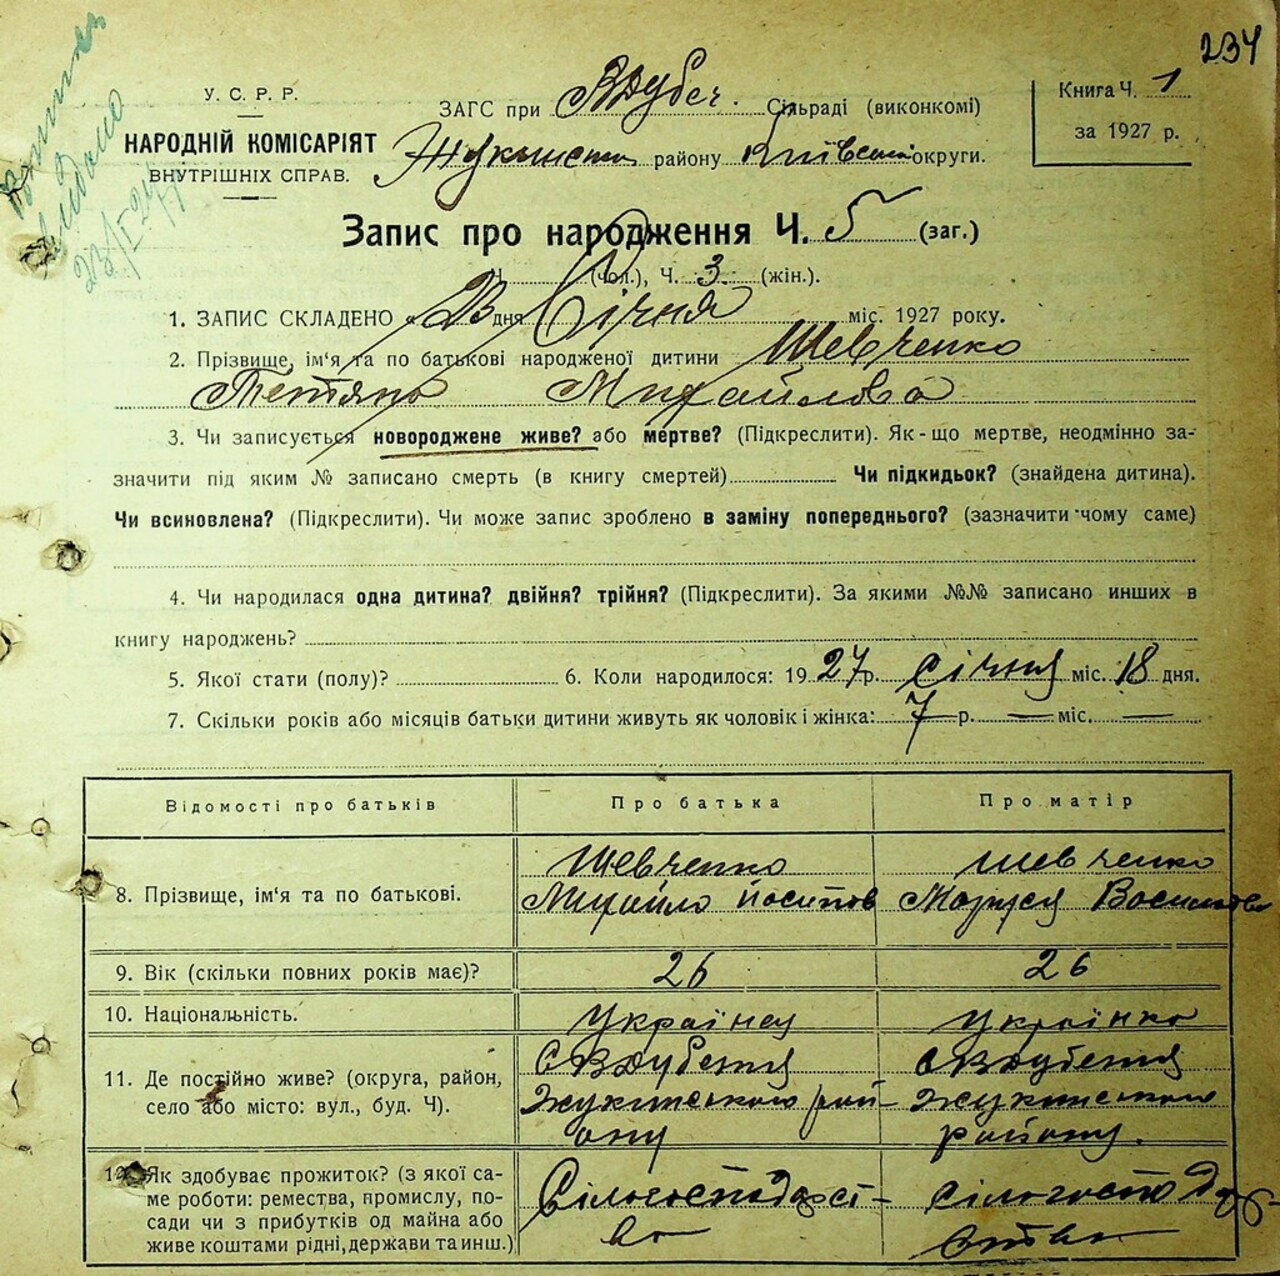 234
У. С. Р. Р.
НАРОДНІЙ КОМІСАРІЯТ
ВНУТРІШНІХ СПРАВ.
23/I-27
ЗАГС при Вдубеч. Сільраді (виконкомі)
району Київської округи.
Книга Ч. 1
за 1927 р.
Запис про народження Ч. 5 (заг.)
Ч. (чол.), Ч. 3. (жін.).
1. ЗАПИС СКЛАДЕНО „23 дня Січня міс. 1927 року.
2. Прізвище, ім'я та по батькові народженої дитини Шевченко
Тетяна Михайлова
3. Чи записується новороджене живе? або мертве? (Підкреслити). Як-що мертве, неодмінно за-
значити під яким № записано смерть (в книгу смертей) Чи підкидьок? (знайдена дитина).
Чи всиновлена? (Підкреслити). Чи може запис зроблено в заміну попереднього? (зазначити чому саме)
4. Чи народилася одна дитина? двійня? трійня? (Підкреслити). За якими №№ записано инших в
книгу народжень?
5. Якої стати (полу)? 6. Коли народилося: 1927 р. січня міс. 18 дня.
7. Скільки років або місяців батьки дитини живуть як чоловік і жінка: 7 р. — міс. —
Відомості про батьків Про батька Про матір
8. Прізвище, ім'я та по батькові.
Шевченко
Михайло Йосипов
Шевченко
Маруся Василева
9. Вік (скільки повних років має)? 26 26
10. Національність. Українец Українка
11. Де постійно живе? (округа, район,
село або місто: вул., буд. Ч).
Жукинського рай-
ону
Жукинського
району.
12. Як здобуває прожиток? (з якої са-
ме роботи: ремества, промислу, по-
сади чи з прибутків од майна або
живе коштами рідні, держави та инш.)
Сільгосподарст-
во
Сільгосподар-
ство